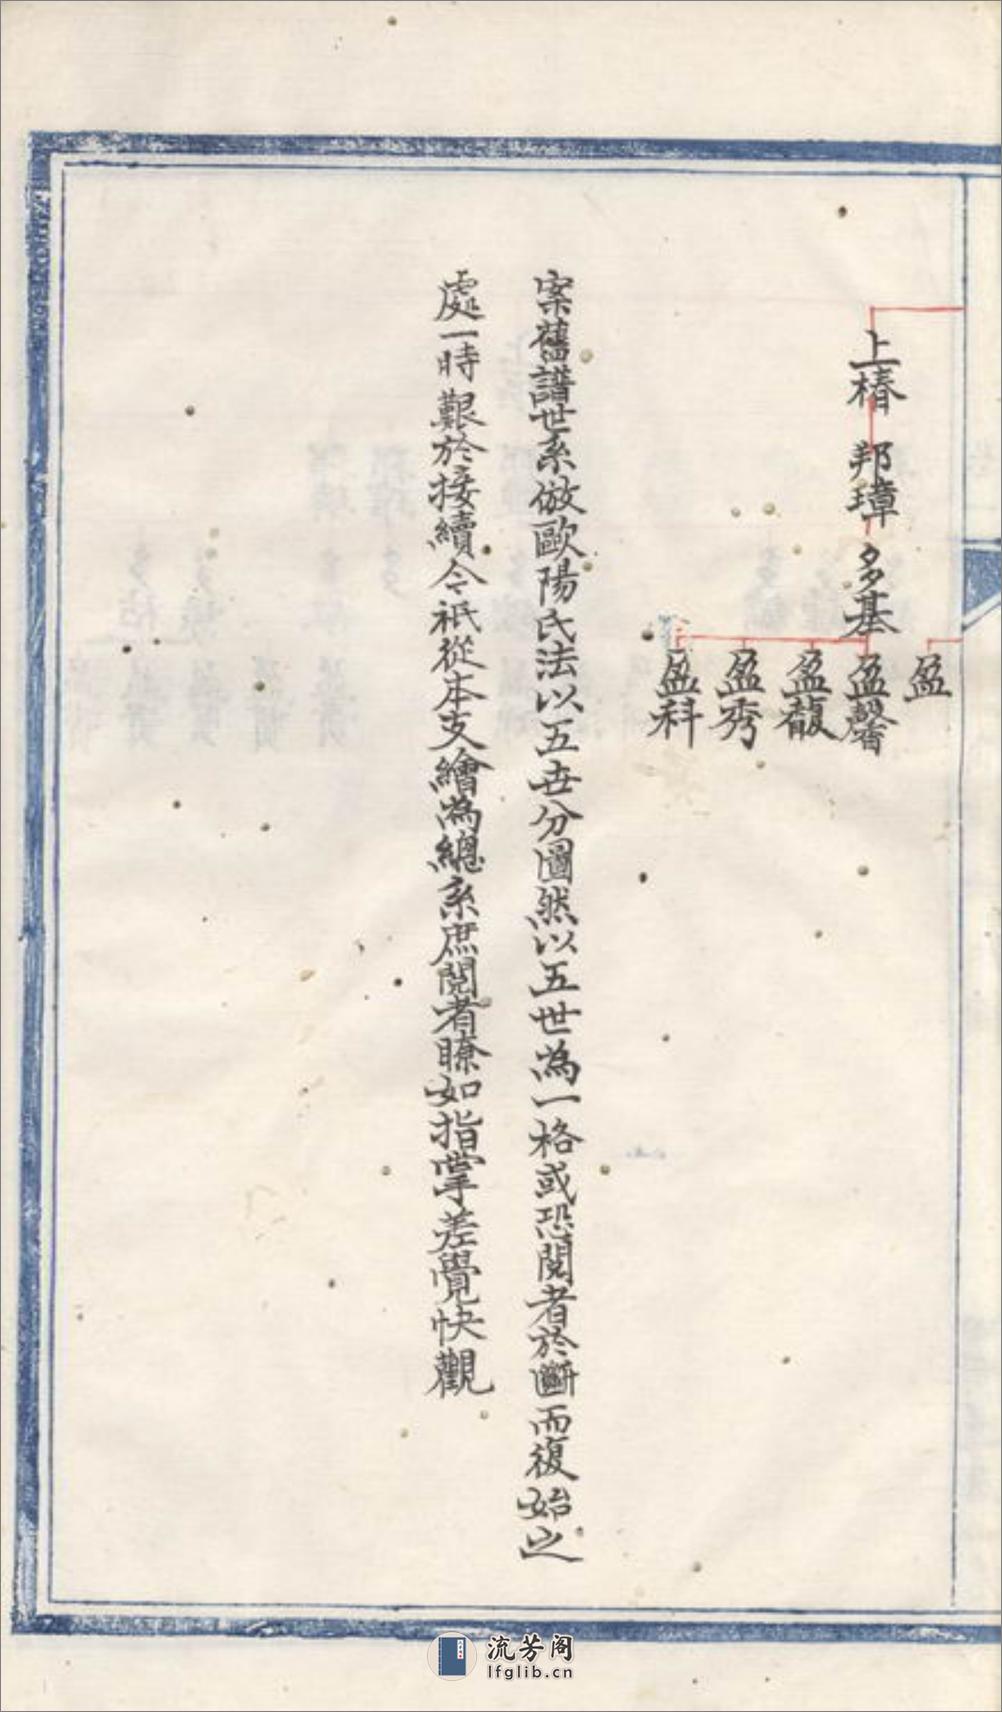 盈
上椿 邦璋 多基 盈馨
盈馥
盈秀
盈科
案舊譜世系倣歐陽氏法以五世分圖然以五世為一格或恐閱者於斷而復始之
處一時艱於接續今祇從本支繪為總系庶閱者瞭如指掌差覺快觀
流芳阁
lfglib.cn